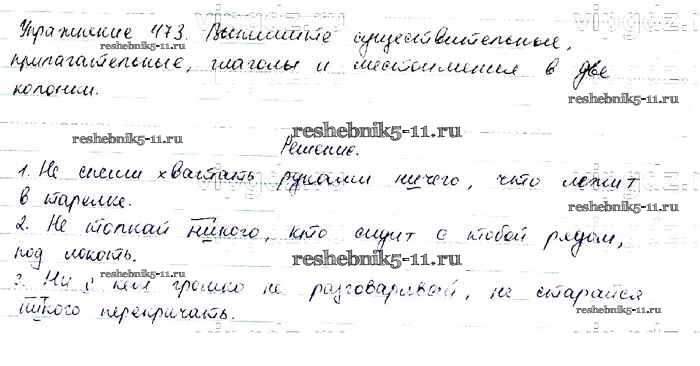 Упражнение 473. Выпишите существительные,
прилагательные, глаголы и местоимения в две
колонки.
Решение.
1. Не спеши хватать руками ничего, что лежит
в тарелке.
2. Не толкай никого, кто сидит с тобой рядом,
под локоть.
3. Ни с кем громко не разговаривай, не старайся
никого перекричать.
reshebnik5-11.ru
reshebnik5-11.ru
reshebnik5-11.ru
reshebnik5-11.ru
reshebnik5-11.ru
reshebnik5-11.ru
reshebnik5-11.ru
reshebnik5-11.ru